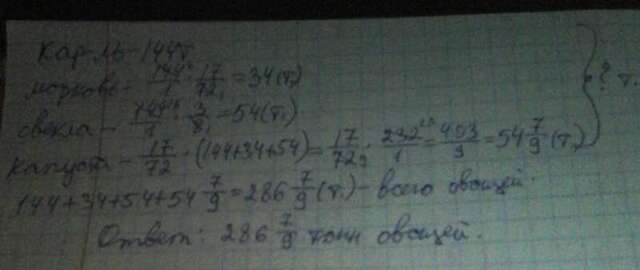 Кар-ль - 144т.
морковь - 144/1 · 17/72 = 34 (т.)
свекла - 144/1 · 3/8 = 54 (т.)
капуста - 17/72 · (144+34+54) = 17/72 · 232/1 = 493/9 = 54 7/9 (т.) } ? т.
144 + 34 + 54 + 54 7/9 = 286 7/9 (т.) - всего овощей.
Ответ: 286 7/9 тонн овощей.